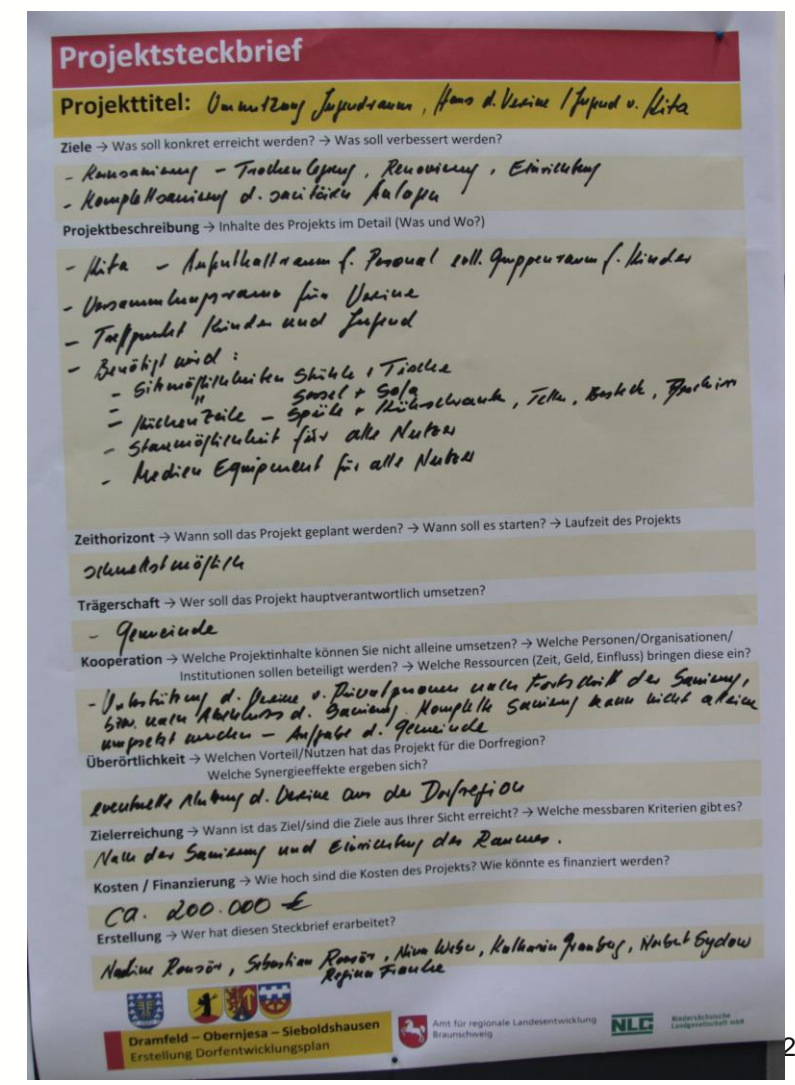 Projektsteckbrief
Projekttitel: Umnutzung Jugendraum, Haus d. Vereine / Jugend u. Kita
Ziele → Was soll konkret erreicht werden? → Was soll verbessert werden?
- Kernsanierung - Trockenlegung, Renovierung, Einrichtung
- Komplettsanierung d. sanitären Anlagen
Projektbeschreibung → Inhalte des Projekts im Detail (Was und Wo?)
- Kita - Aufenthaltsraum f. Personal evtl. Gruppenraum f. Kinder
- Versammlungsraum für Vereine
- Treffpunkt Kinder und Jugend
- Benötigt wird:
- Sitzmöglichkeiten Stühle + Tische
- " Sessel + Sofa
- Küchenzeile - Spüle + Kühlschrank, Teller, Besteck,
- Staumöglichkeit für alle Nutzer
- Medien Equipment für alle Nutzer
Zeithorizont → Wann soll das Projekt geplant werden? → Wann soll es starten? → Laufzeit des Projekts
schnellstmöglich
Trägerschaft → Wer soll das Projekt hauptverantwortlich umsetzen?
- Gemeinde
Kooperation → Welche Projektinhalte können Sie nicht alleine umsetzen? → Welche Personen/Organisationen/
Institutionen sollen beteiligt werden? → Welche Ressourcen (Zeit, Geld, Einfluss) bringen diese ein?
- Unterstützung d. Vereine u. Privatpersonen nach Fortschritt der Sanierung,
bzw. nach Abschluss d. Sanierung. Komplette Sanierung kann nicht alleine
umgesetzt werden - Aufgabe d. Gemeinde
Überörtlichkeit → Welchen Vorteil/Nutzen hat das Projekt für die Dorfregion?
Welche Synergieeffekte ergeben sich?
eventuelle Nutzung d. Vereine aus der Dorfregion
Zielerreichung → Wann ist das Ziel/sind die Ziele aus Ihrer Sicht erreicht? → Welche messbaren Kriterien gibt es?
Nach der Sanierung und Einrichtung des Raumes.
Kosten / Finanzierung → Wie hoch sind die Kosten des Projekts? Wie könnte es finanziert werden?
ca. 200.000 €
Erstellung → Wer hat diesen Steckbrief erarbeitet?
Nadine, Sebastian, Nina Weber, Katharina, Norbert Sydow
Regina Franke
Dramfeld – Obernjesa – Sieboldshausen
Erstellung Dorfentwicklungsplan
Amt für regionale Landesentwicklung
Braunschweig
NLG
Niedersächsische
Landgesellschaft mbH
2